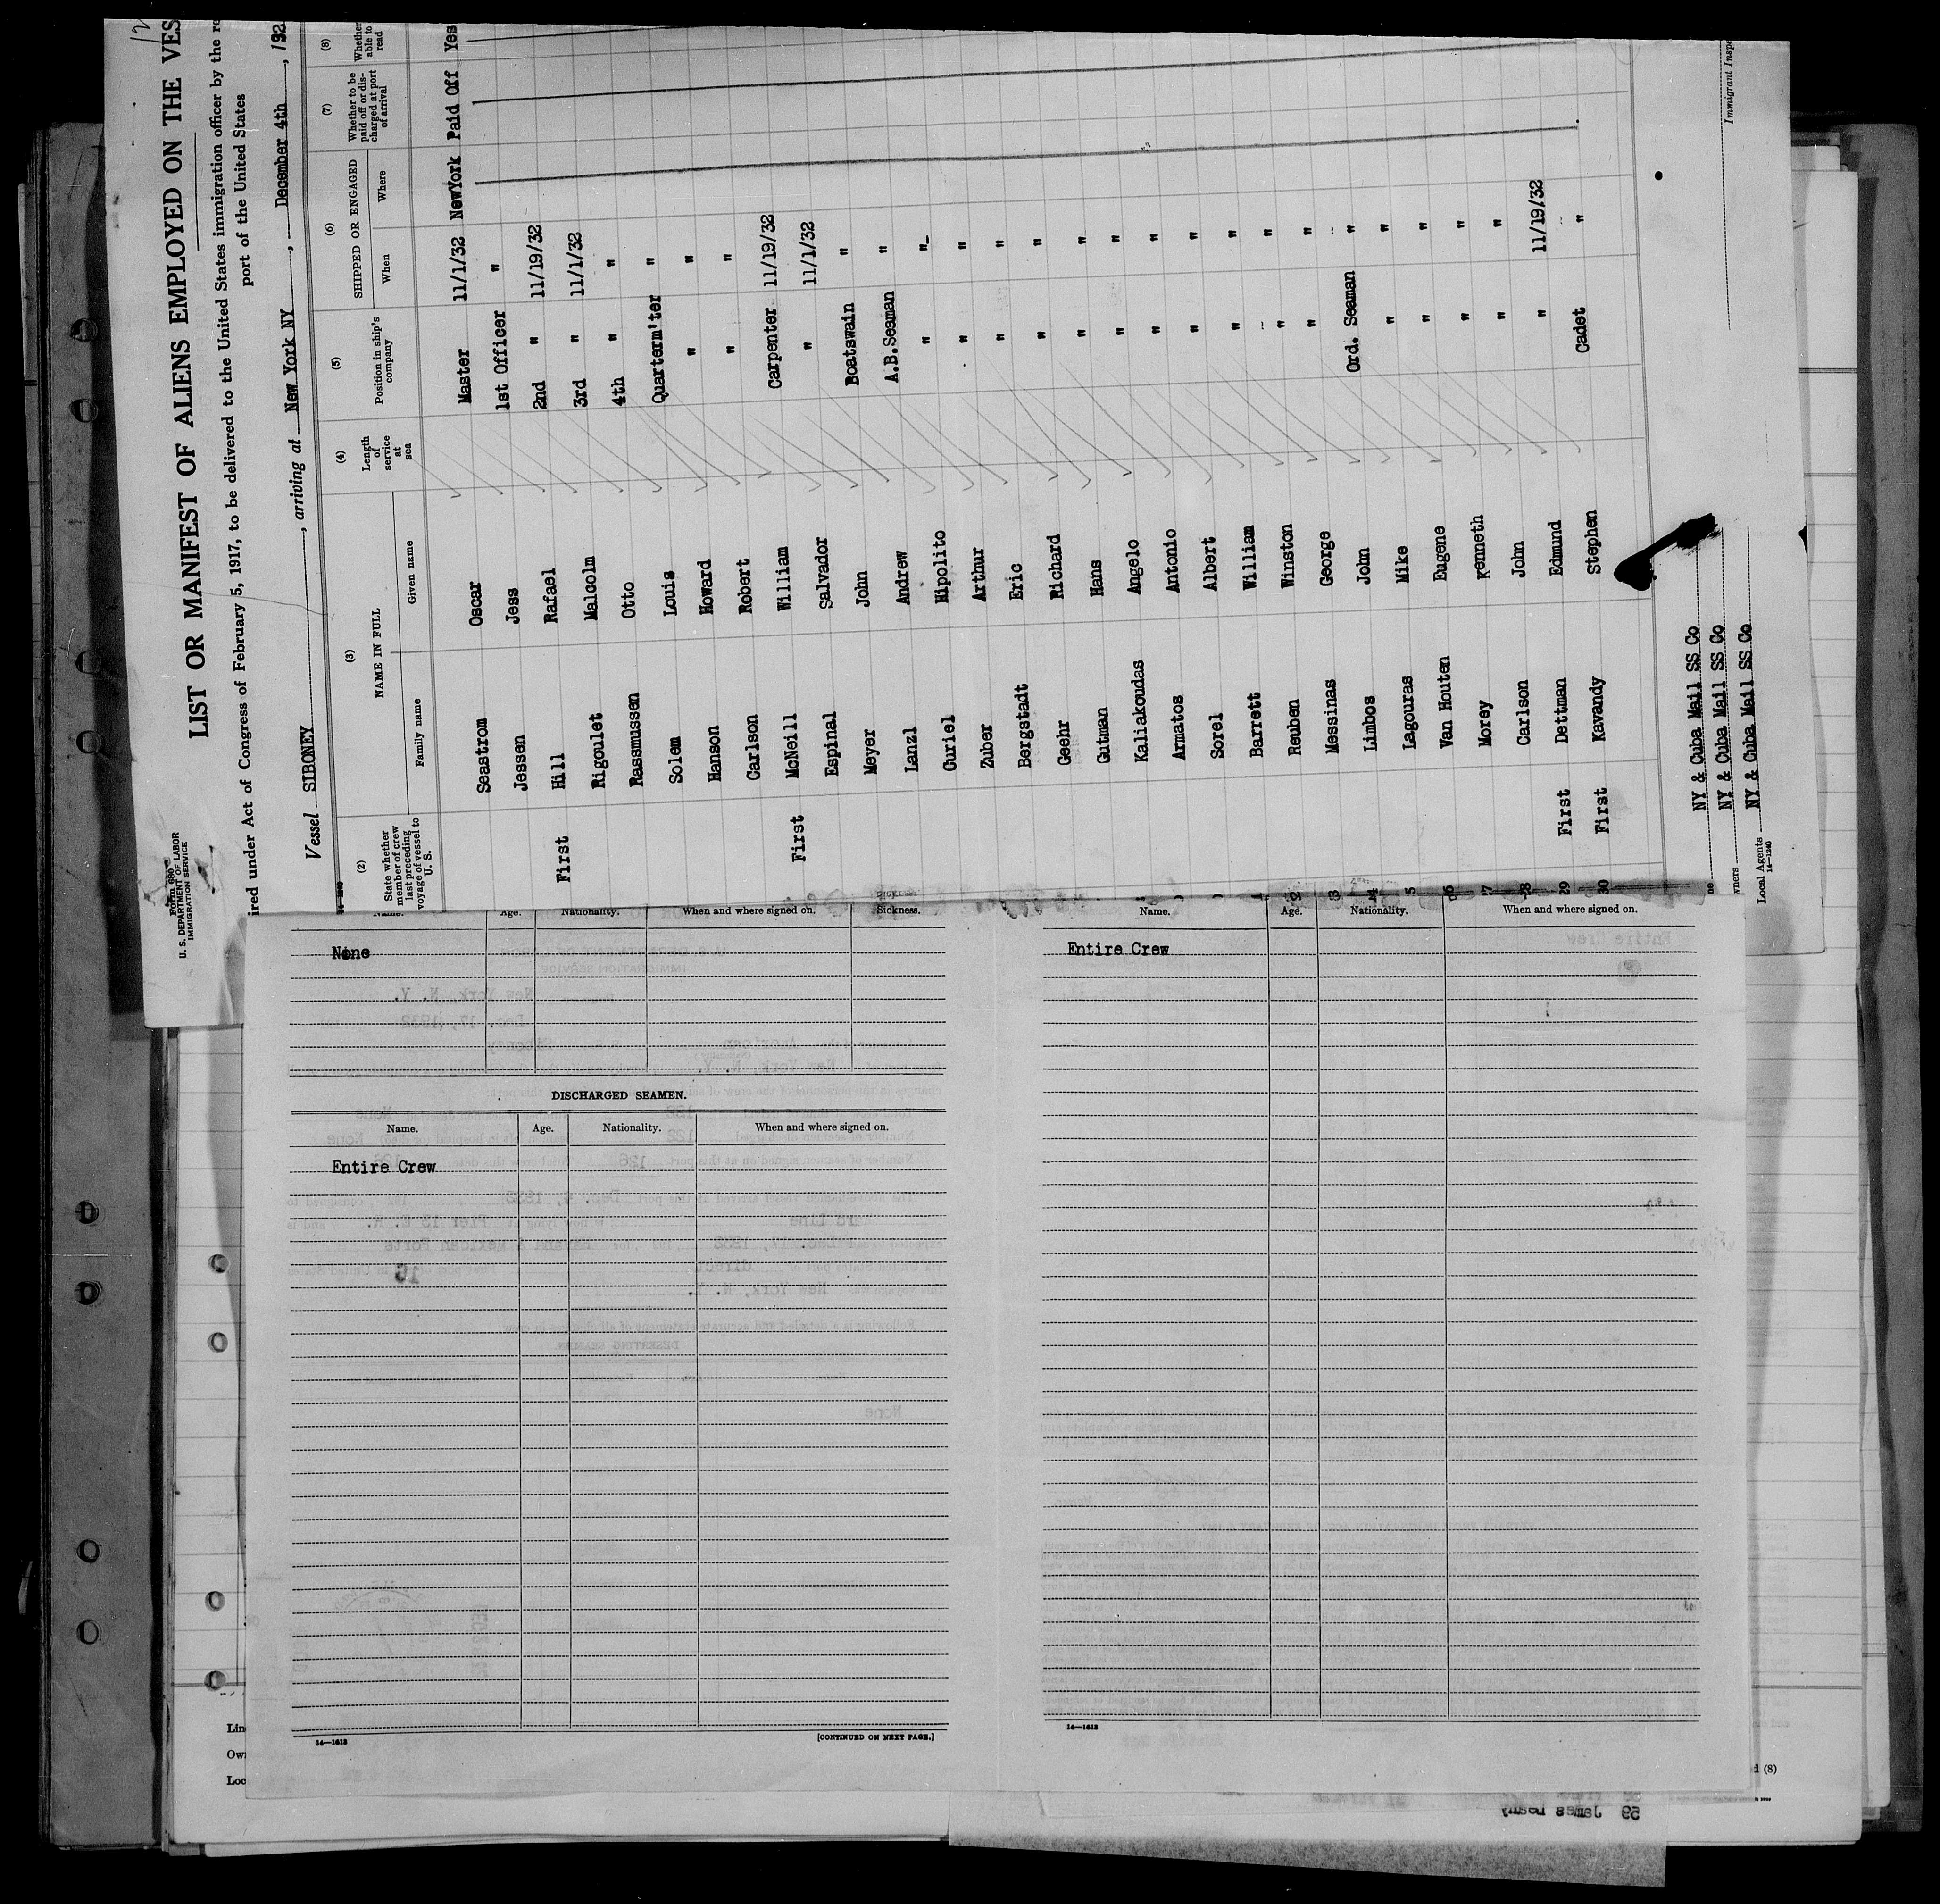 Form 680
U. S. DEPARTMENT OF LABOR
IMMIGRATION SERVICE
LIST OR MANIFEST OF ALIENS EMPLOYED ON THE VES
ired under Act of Congress of February 5, 1917, to be delivered to the United States immigration officer by the re
port of the United States
Vessel SIBONEY, arriving at New York NY, December 4th, 192
(2) (3) (4) (5) (6) (7) (8)
State whether member of crew last preceding voyage of vessel to U. S.
NAME IN FULL
Family name Given name
Length of service at sea
Position in ship's company
SHIPPED OR ENGAGED
When Where
Whether to be paid off or discharged at port of arrival
Whether able to read
Seastrom Oscar Master 11/1/32 NewYork Paid Off Yes
Jessen Jess 1st Officer "
First Hill Rafael 2nd " 11/19/32
Rigoulet Malcolm 3rd " 11/1/32
Rasmussen Otto 4th " "
Solem Louis Quarterm'ter "
Hanson Howard " "
Carlson Robert " "
First McNeill William Carpenter 11/19/32
Espinal Salvador " 11/1/32
Meyer John Boatswain "
Lanzl Andrew A.B.Seaman "
Curiel Hipolito " "
Zuber Arthur " "
Bergstadt Eric " "
Geehr Richard " "
Gutman Hans " "
Kaliakoudas Angelo " "
Armatos Antonio " "
Sorel Albert " "
Barrett William " "
Reuben Winston " "
Messinas George " "
Limbos John Ord. Seaman "
Lagouras Mike " "
Van Houten Eugene " "
Morey Kenneth " "
Carlson John " "
29 First Dettman Edmund " 11/19/32
30 First Kavandy Stephen Cadet "
NY & Cuba Mail SS Co
NY & Cuba Mail SS Co
Local Agents NY & Cuba Mail SS Co
14—1240
Immigrant Inspe
Name. Age. Nationality. When and where signed on. Sickness.
None
DISCHARGED SEAMEN.
Name. Age. Nationality. When and where signed on.
Entire Crew
14—1613
[CONTINUED ON NEXT PAGE.]
Name. Age. Nationality. When and where signed on.
Entire Crew
14—1613
Lin
Own
Loc
d (8)